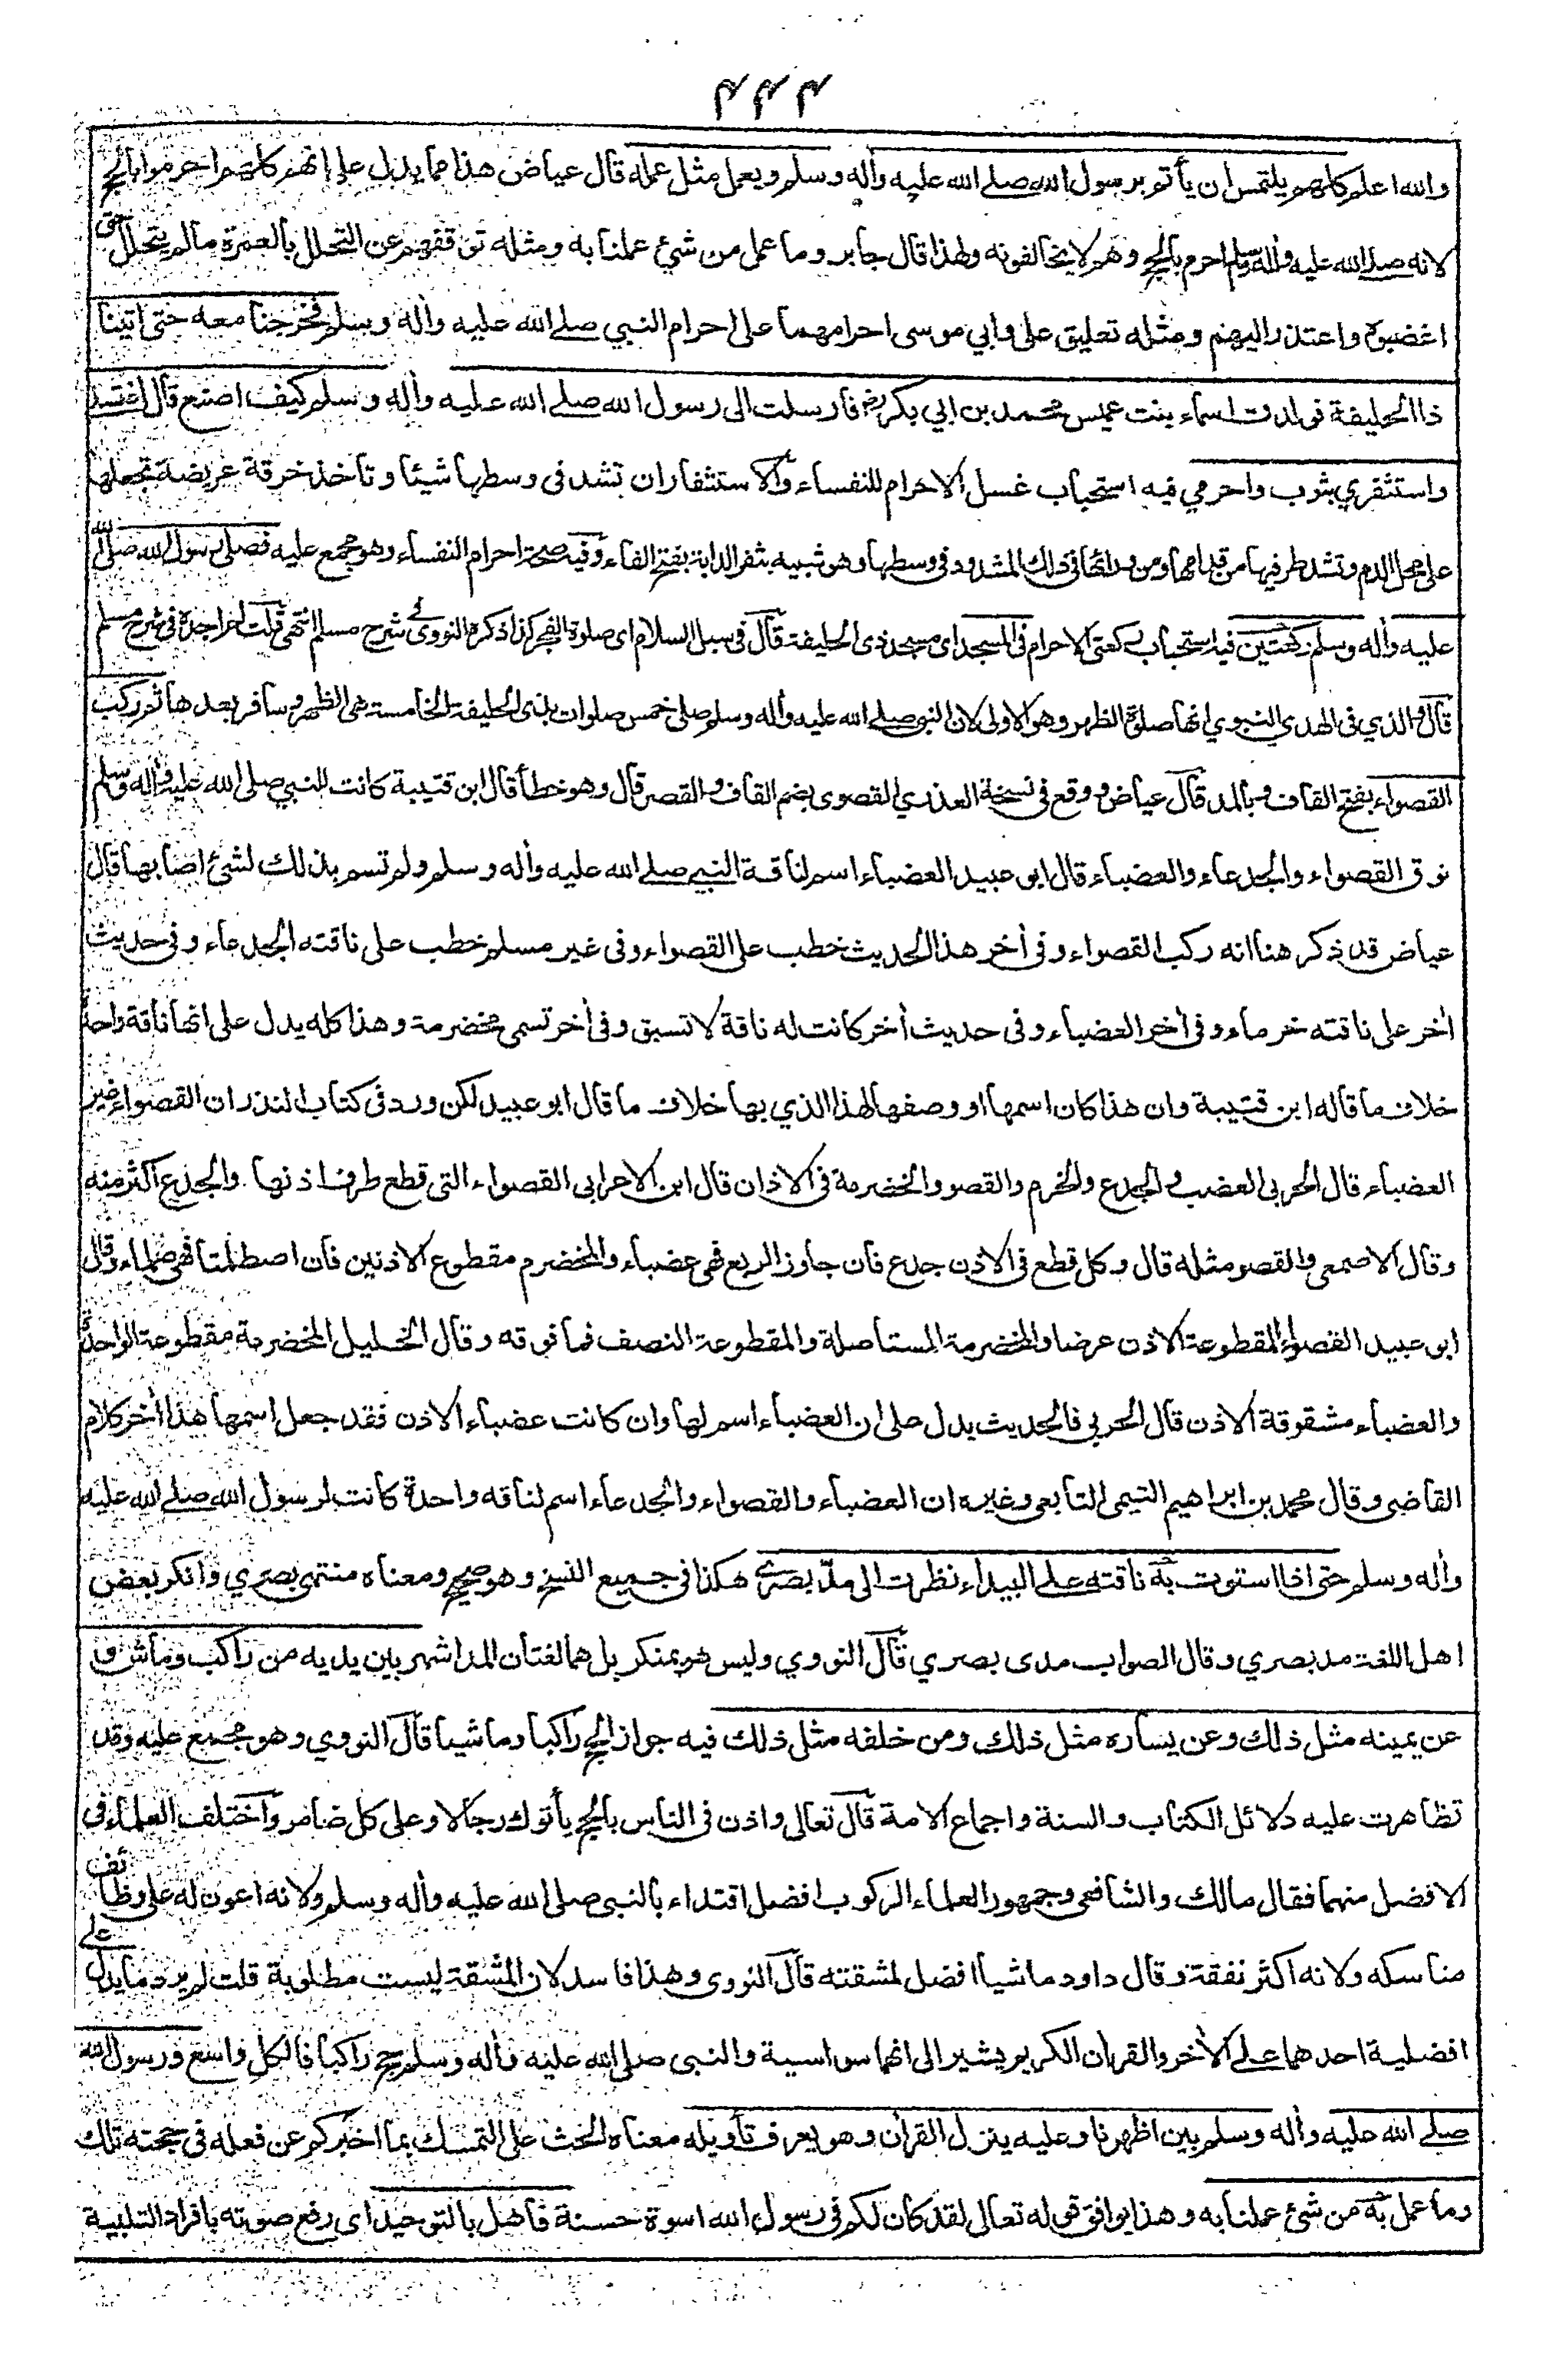 والله اعلم كلهم يلتمس ان يأتم برسول الله صلى الله عليه وأله وسلم ويعمل مثل عمله قال عياض هذا مما يدل على انهم كلهم احرموا بالحج
لانه صلى الله عليه وأله وسلم احرم بالحج وهم لا يخالفونه ولهذا قال جابر وما عمل من شئ عملنا به ومثله توقفهم عن التحلل بالعمرة مالم يتحلل حتى
اغضبوه واعتذر اليهم ومثله تعليق علي وابي موسى احرامهما على احرام النبي صلى الله عليه وأله وسلم فخرجنا معه حتى اتينا
ذا الحليفة فولدت اسماء بنت عميس محمد بن ابي بكر رض فارسلت الى رسول الله صلى الله عليه وأله وسلم كيف اصنع قال اغتسلي
واستثفري بثوب واحرمي فيه استحباب غسل الاحرام للنفساء والاستثفار ان تشد في وسطها شيئا وتأخذ خرقة عريضة تجعلها
على محل الدم وتشد طرفيها من قدامها ومن ورائها في ذلك المشدود في وسطها وهو شبيه بثفر الدابة بفتح الفاء وفيه صحة احرام النفساء وهو مجمع عليه فصلى رسول الله صلى الله
عليه وأله وسلم ركعتين فيه استحباب ركعتي الاحرام في المسجد اي مسجد ذي الحليفة قال في سبل السلام اي صلوة الفجر كذا ذكره النووي في شرح مسلم انتهى قلت لم اجده في شرح مسلم
قال والذي في الهدي النبوي انها صلوة الظهر وهو الاولى لان النبي صلى الله عليه وأله وسلم صلى خمس صلوات بذي الحليفة الخامسة هي الظهر وسافر بعدها ثم ركب
القصواء بفتح القاف وبالمد قال عياض ووقع في نسخة العذري القصوى بضم القاف والقصر قال وهو خطأ قال ابن قتيبة كانت للنبي صلى الله عليه وأله وسلم
نوق القصواء والجدعاء والعضباء قال ابو عبيد العضباء اسم لناقة النبي صلى الله عليه وأله وسلم ولم تسم بذلك لشئ اصابها قال
عياض قد ذكر هنا انه ركب القصواء وفي أخر هذا الحديث خطب على القصواء وفي غير مسلم خطب على ناقته الجدعاء وفي حديث
أخر على ناقته خرماء وفي أخر العضباء وفي حديث أخر كانت له ناقة لا تسبق وفي أخر تسمى مخضرمة وهذا كله يدل على انها ناقة واحدة
خلاف ما قاله ابن قتيبة وان هذا كان اسمها او وصفها لهذا الذي بها خلاف ما قال ابو عبيد لكن ورد في كتاب النذر ان القصواء غير
العضباء قال الحربي العضب والجدع والخرم والقصو والخضرمة في الاذان قال ابن الاعرابي القصواء التي قطع طرف اذنها والجدع اكثر منه
وقال الاصمعي والقصو مثله قال وكل قطع في الاذن جدع فان جاوز الربع فهي عضباء والمخضرم مقطوع الاذنين فان اصطلمتا فهي صلماء وقال
ابو عبيد القصواء المقطوعة الاذن عرضا والمخضرمة المستأصلة والمقطوعة النصف فما فوقه وقال الخليل المخضرمة مقطوعة الواحدة
والعضباء مشقوقة الاذن قال الحربي فالحديث يدل على ان العضباء اسم لها وان كانت عضباء الاذن فقد جعل اسمها هذا أخر كلام
القاضي وقال محمد بن ابراهيم التيمي التابعي وغيره ان العضباء والقصواء والجدعاء اسم لناقه واحدة كانت لرسول الله صلى الله عليه
وأله وسلم حتى اذا استوت به ناقته على البيداء نظرت الى مد بصري هكذا في جميع النسخ وهو صحيح ومعناه منتهى بصري وانكر بعض
اهل اللغة مد بصري وقال الصواب مدى بصري قال النووي وليس هو بمنكر بل هما لغتان المد اشهر بين يديه من راكب وماش و
عن يمينه مثل ذلك وعن يساره مثل ذلك ومن خلفه مثل ذلك فيه جواز الحج راكبا وماشيا قال النووي وهو مجمع عليه وقد
تظاهرت عليه دلائل الكتاب والسنة واجماع الامة قال تعالى واذن في الناس بالحج يأتوك رجالا وعلى كل ضامر واختلف العلماء في
الافضل منهما فقال مالك والشافعي وجمهور العلماء الركوب افضل اقتداء بالنبي صلى الله عليه وأله وسلم ولانه اعون له على وظائف
مناسكه ولانه اكثر نفقة وقال داود ماشيا افضل لمشقته قال النووي وهذا فاسد لان المشقة ليست مطلوبة قلت لم يرد ما يدل على
افضلية احدهما على الأخر والقرأن الكريم يشير الى انهما سواسية والنبي صلى الله عليه وأله وسلم حج راكبا فالكل واسع ورسول الله
صلى الله عليه وأله وسلم بين اظهرنا وعليه ينزل القرأن وهو يعرف تأويله معناه الحث على التمسك بما اخبركم عن فعله في حجته تلك
وما عمل به من شئ عملنا به وهذا يوافق قوله تعالى لقد كان لكم في رسول الله اسوة حسنة فأهل بالتوحيد اي رفع صوته بافراد التلبية